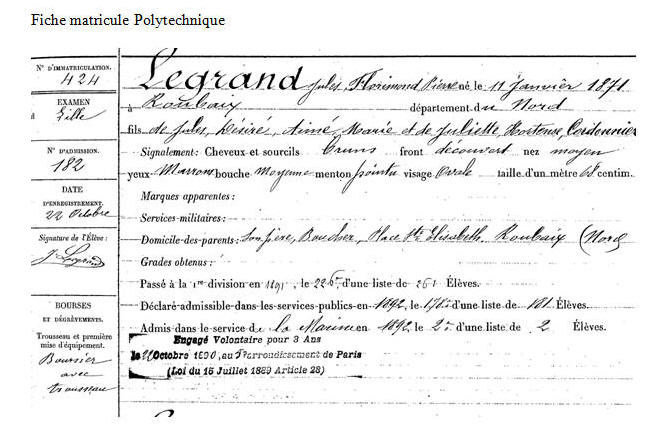 Fiche matricule Polytechnique
N° D'IMMATRICULATION.
424
EXAMEN
d Lille
N° D'ADMISSION.
182
DATE
D'ENREGISTREMENT.
22 Octobre
Signature de l'Élève:
J. Legrand
BOURSES
ET DÉGRÈVEMENTS.
Trousseau et première
mise d'équipement.
Boursier
avec
trousseau
Legrand Jules, Florimond Pierre né le 11 Janvier 1871
à Roubaix département du Nord
fils de Jules, Désiré, Aimé, Marie et de Juliette, Hortense, Cordonnier
Signalement: Cheveux et sourcils bruns front découvert nez moyen
yeux Marron bouche Moyenne menton pointu visage Ovale taille d'un mètre 68 centim.
Marques apparentes:
Services militaires:
Domicile des parents: Son père, Boucher, Place Ste Elisabeth, Roubaix (Nord)
Grades obtenus:
Passé à la 1re division en 1891, le 226e d'une liste de 251 Élèves.
Déclaré admissible dans les services publics en 1892, le d'une liste de 181 Élèves.
Admis dans le service de la Marine en 1892 le 2e d'une liste de 2 Élèves.
Engagé Volontaire pour 3 Ans
le 22 Octobre 1890, au arrondissement de Paris
(Loi du 15 Juillet 1889 Article 28)